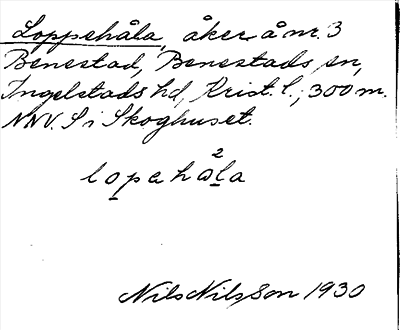 Loppehåla, åker å nr. 3
Benestad, Benestads sn,
Ingelstads hd, Krist. l., 300 m.
NNV. S i Skoghuset.
lopahåla
2
Nils Nilsson 1930